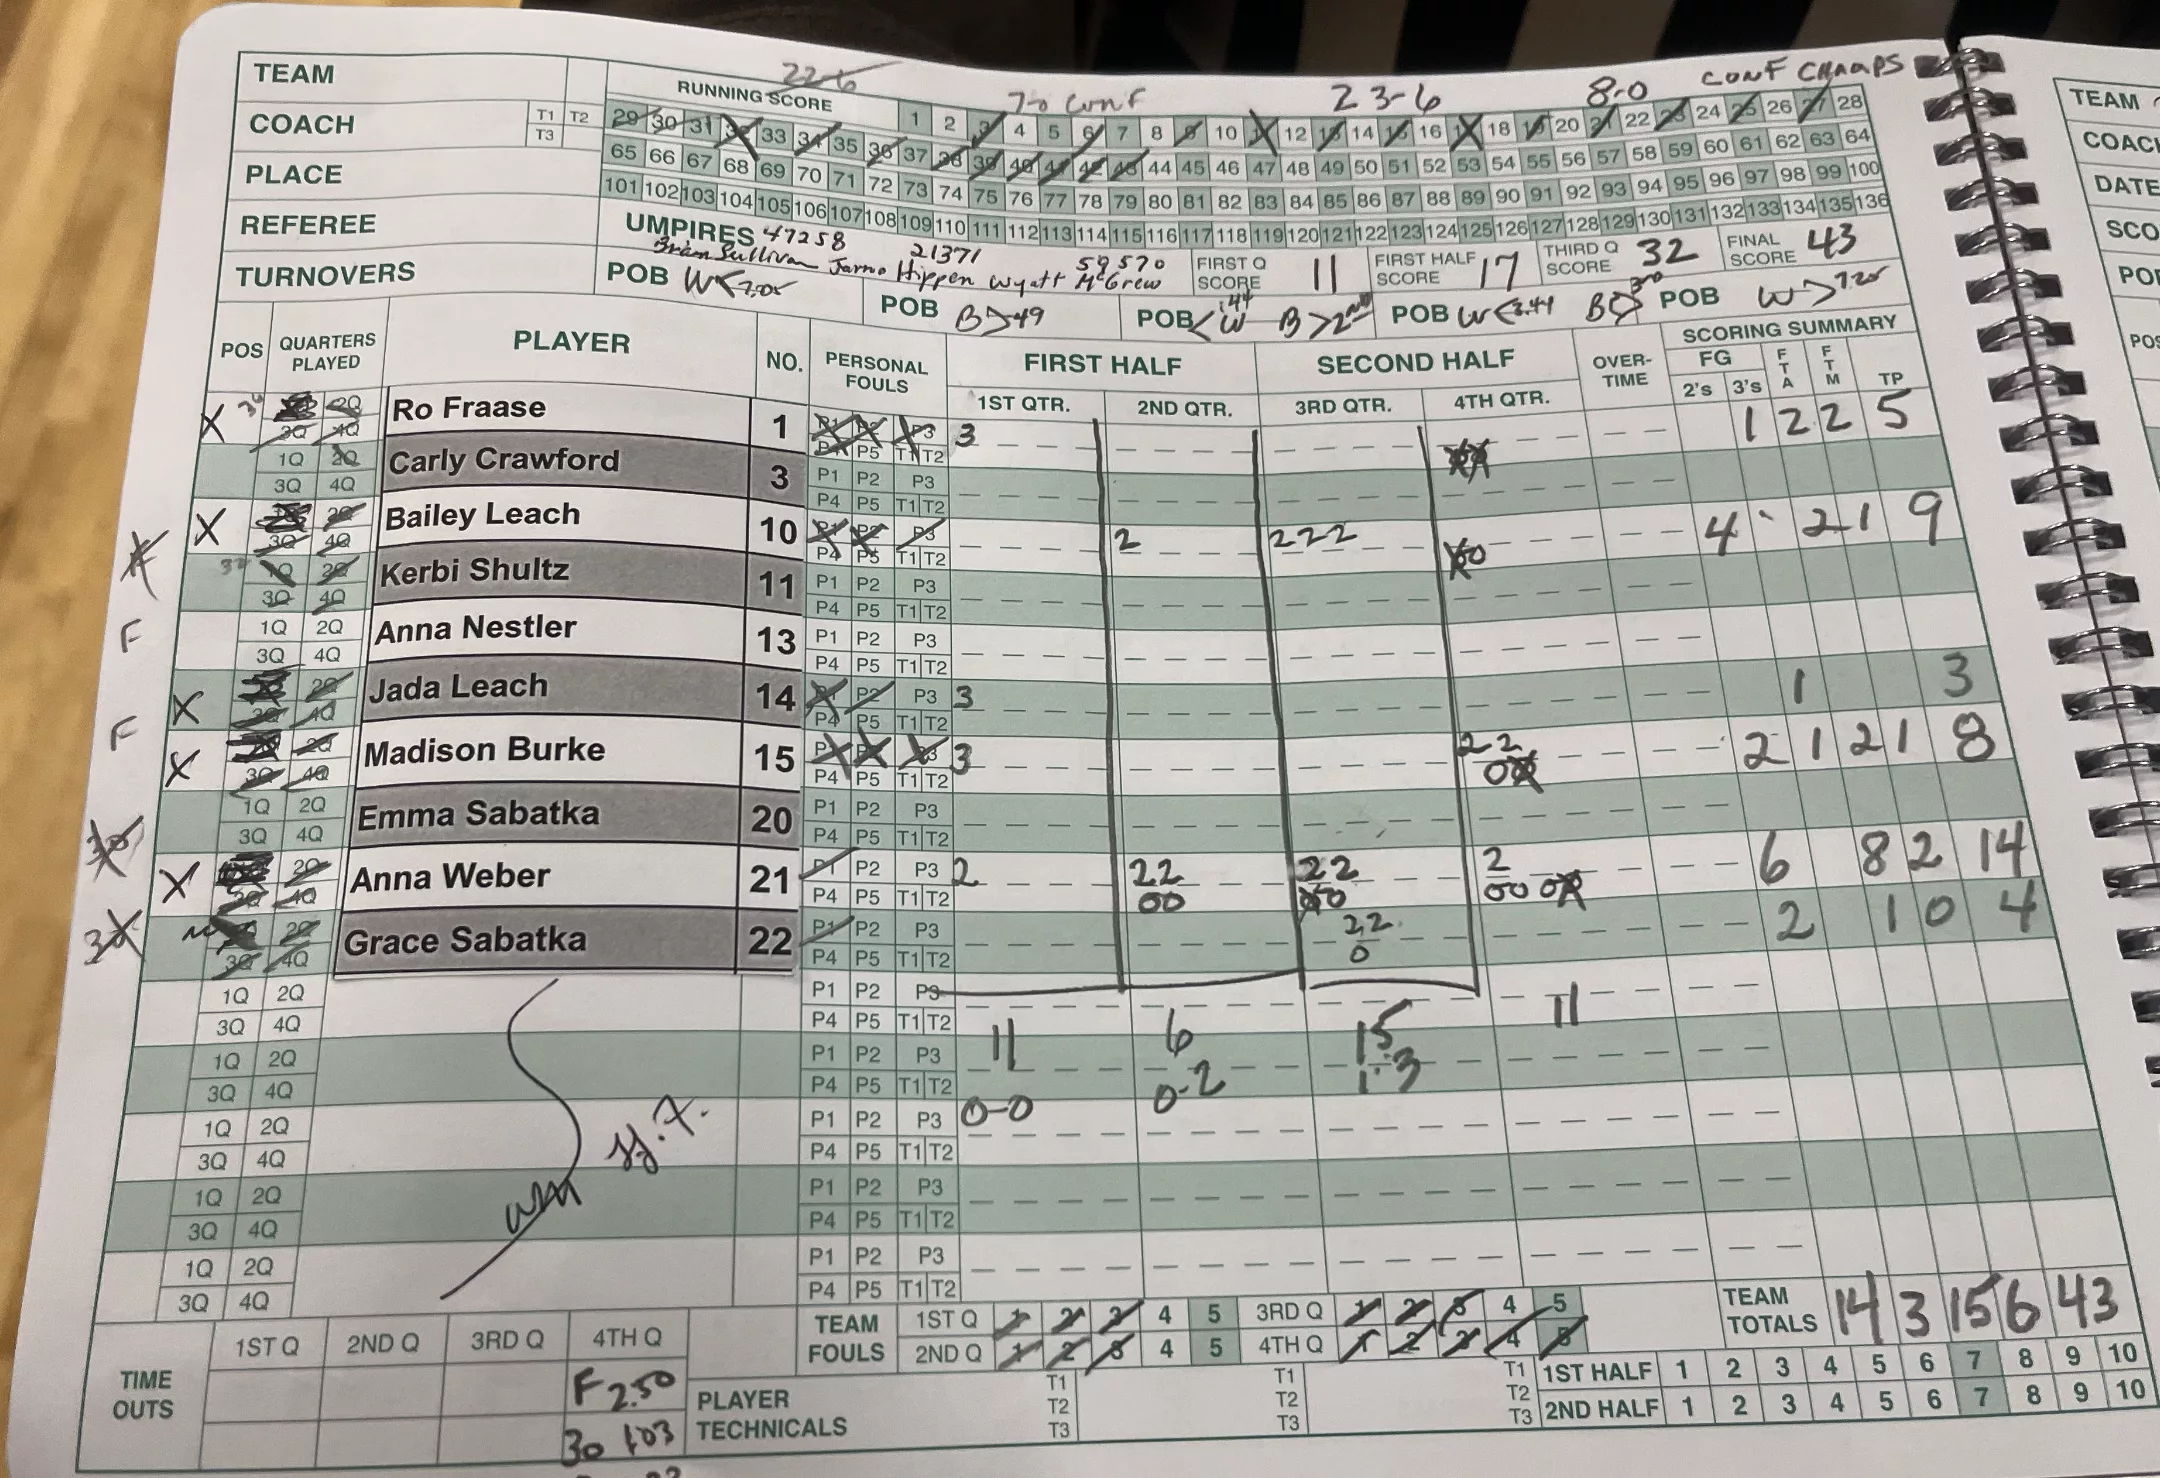 22-6 7-0 CONF 23-6 8-0 CONF CHAMPS
TEAM
RUNNING SCORE 1 2 3 4 5 6 7 8 9 10 11 12 13 14 15 16 17 18 19 20 21 22 23 24 25 26 27 28
COACH T1 T2 T3
29 30 31 32 33 34 35 36 37 38 39 40 41 42 43 44 45 46 47 48 49 50 51 52 53 54 55 56 57 58 59 60 61 62 63 64
PLACE
65 66 67 68 69 70 71 72 73 74 75 76 77 78 79 80 81 82 83 84 85 86 87 88 89 90 91 92 93 94 95 96 97 98 99 100
101 102 103 104 105 106 107 108 109 110 111 112 113 114 115 116 117 118 119 120 121 122 123 124 125 126 127 128 129 130 131 132 133 134 135 136
REFEREE
UMPIRES 47258 21371 59570
Brian Sullivan Jarno Hippen Wyatt McGrew
FIRST Q SCORE 11 FIRST HALF SCORE 17 THIRD Q SCORE 32 FINAL SCORE 43
TURNOVERS
POB W< 7.05 POB B>49 POB <W 44 B>2nd POB W<3.44 B> 3rd POB W>7.25
POS QUARTERS PLAYED PLAYER NO. PERSONAL FOULS FIRST HALF SECOND HALF OVER-TIME SCORING SUMMARY
1ST QTR. 2ND QTR. 3RD QTR. 4TH QTR. FG 2's 3's FTA FTM TP
X 1Q 2Q 3Q 4Q Ro Fraase 1 P1 P2 P3 P4 P5 T1 T2 3 1 2 2 5
1Q 2Q 3Q 4Q Carly Crawford 3 P1 P2 P3 P4 P5 T1 T2
X 1Q 2Q 3Q 4Q Bailey Leach 10 P1 P2 P3 P4 P5 T1 T2 2 222 4 2 1 9
1Q 2Q 3Q 4Q Kerbi Shultz 11 P1 P2 P3 P4 P5 T1 T2
F 1Q 2Q 3Q 4Q Anna Nestler 13 P1 P2 P3 P4 P5 T1 T2
X 1Q 2Q 3Q 4Q Jada Leach 14 P1 P2 P3 P4 P5 T1 T2 3 1 3
F X 1Q 2Q 3Q 4Q Madison Burke 15 P1 P2 P3 P4 P5 T1 T2 3 2 2 2 1 2 1 8
1Q 2Q 3Q 4Q Emma Sabatka 20 P1 P2 P3 P4 P5 T1 T2
30 X 1Q 2Q 3Q 4Q Anna Weber 21 P1 P2 P3 P4 P5 T1 T2 2 22 00 22 2 6 8 2 14
30 1Q 2Q 3Q 4Q Grace Sabatka 22 P1 P2 P3 P4 P5 T1 T2 22 0 2 1 0 4
1Q 2Q 3Q 4Q P1 P2 P3 P4 P5 T1 T2 11 6 15 11
1Q 2Q 3Q 4Q P1 P2 P3 P4 P5 T1 T2 0-2 1-3
1Q 2Q 3Q 4Q P1 P2 P3 P4 P5 T1 T2 0-0
1Q 2Q 3Q 4Q P1 P2 P3 P4 P5 T1 T2
1Q 2Q 3Q 4Q P1 P2 P3 P4 P5 T1 T2
TEAM FOULS 1ST Q 1 2 3 4 5 3RD Q 1 2 3 4 5 TEAM TOTALS 14 3 15 6 43
2ND Q 1 2 3 4 5 4TH Q 1 2 3 4 5
TIME OUTS 1ST Q 2ND Q 3RD Q 4TH Q
F 2.50
30 1:03
PLAYER TECHNICALS T1 T2 T3 T1 T2 T3 T1 T2 T3
1ST HALF 1 2 3 4 5 6 7 8 9 10
2ND HALF 1 2 3 4 5 6 7 8 9 10
TEAM
COAC
DATE
SCO
PO
POS